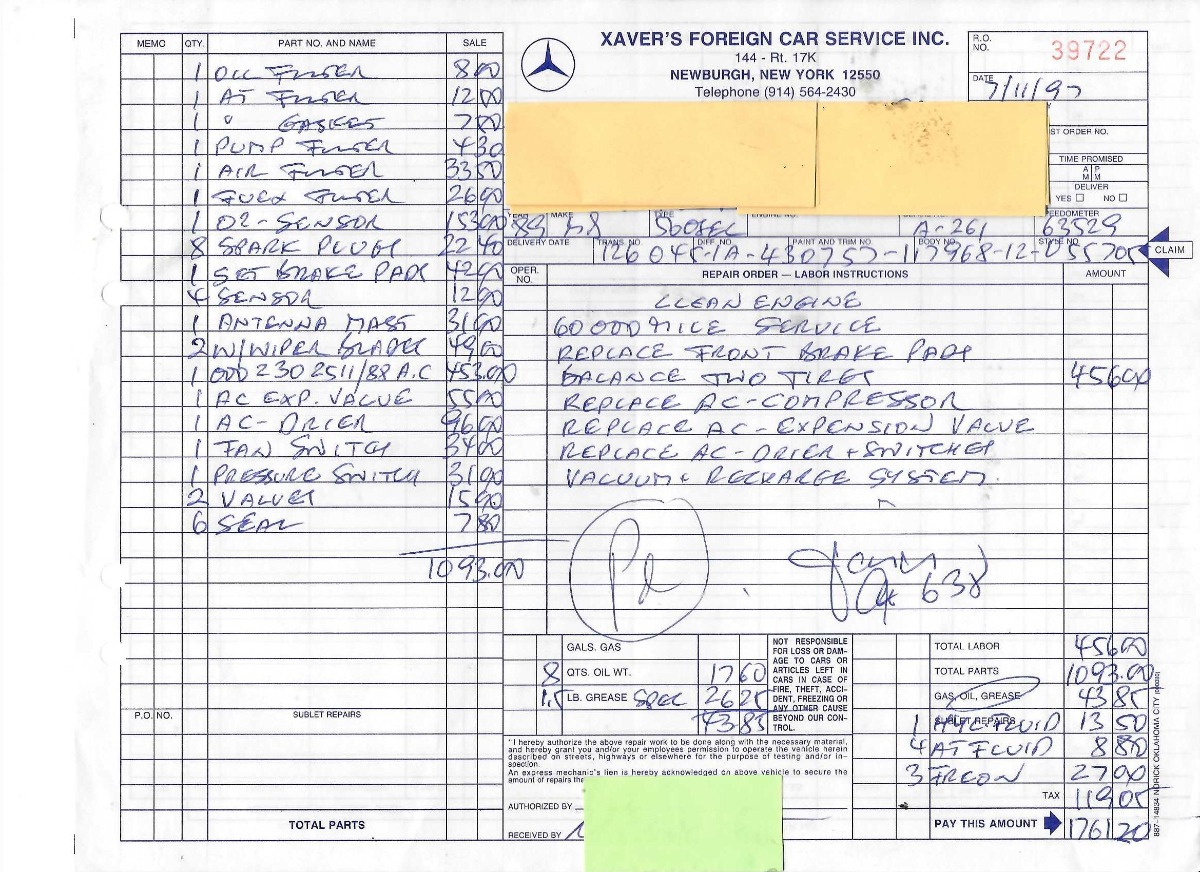 XAVER'S FOREIGN CAR SERVICE INC.
144 - Rt. 17K
NEWBURGH, NEW YORK 12550
Telephone (914) 564-2430
R.O. NO. 39722
DATE 7/11/97
ST ORDER NO.
TIME PROMISED
A M P M
DELIVER
YES NO
YEAR 89 MAKE MB TYPE 560SEL ENGINE NO. A-261 SPEEDOMETER 63529
DELIVERY DATE TRANS. NO. DIFF. NO. PAINT AND TRIM NO. BODY NO. STYLE NO.
126 045-1A-430757-117968-12-055705
CLAIM
MEMO QTY. PART NO. AND NAME SALE
1 OIL FILTER 8 00
1 AT FILTER 12 00
1 " GASKET 7 00
1 PUMP FILTER 4 30
1 AIR FILTER 33 50
1 FUEL FILTER 26 00
1 O2-SENSOR 153 00
8 SPARK PLUGS 22 40
1 SET BRAKE PADS 42 00
4 SENSOR 12 00
1 ANTENNA MAST 31 00
2 W/WIPER BLADES 49 00
1 000 230 2511/88 A.C 453.00
1 AC EXP. VALVE 55 00
1 AC-DRIER 96 00
1 FAN SWITCH 34 00
1 PRESSURE SWITCH 31 00
2 VALVES 15 90
6 SEAL 7 80
1093.00
P.O. NO. SUBLET REPAIRS
TOTAL PARTS
OPER. NO. REPAIR ORDER — LABOR INSTRUCTIONS AMOUNT
CLEAN ENGINE
60000 MILE SERVICE
REPLACE FRONT BRAKE PADS
BALANCE TWO TIRES 456 00
REPLACE AC-COMPRESSOR
REPLACE AC-EXPENSION VALVE
REPLACE AC-DRIER + SWITCHES
VACUUM + RECHARGE SYSTEM
Pd
638
GALS. GAS
8 QTS. OIL WT. 17 60
1.5 LB. GREASE SPEC 26 25
43 85
NOT RESPONSIBLE FOR LOSS OR DAMAGE TO CARS OR ARTICLES LEFT IN CARS IN CASE OF FIRE, THEFT, ACCIDENT, FREEZING OR ANY OTHER CAUSE BEYOND OUR CONTROL.
TOTAL LABOR 456 00
TOTAL PARTS 1093.00
GAS, OIL, GREASE 43 85
SUBLET REPAIRS
1 HYL. FLUID 13 50
4 AT FLUID 8 80
3 FREON 27 00
TAX 119 05
PAY THIS AMOUNT 1761 20
"I hereby authorize the above repair work to be done along with the necessary material,
and hereby grant you and/or your employees permission to operate the vehicle herein
described on streets, highways or elsewhere for the purpose of testing and/or in-
spection.
An express mechanic's lien is hereby acknowledged on above vehicle to secure the
amount of repairs the
AUTHORIZED BY
RECEIVED BY
887-14834 NORICK OKLAHOMA CITY